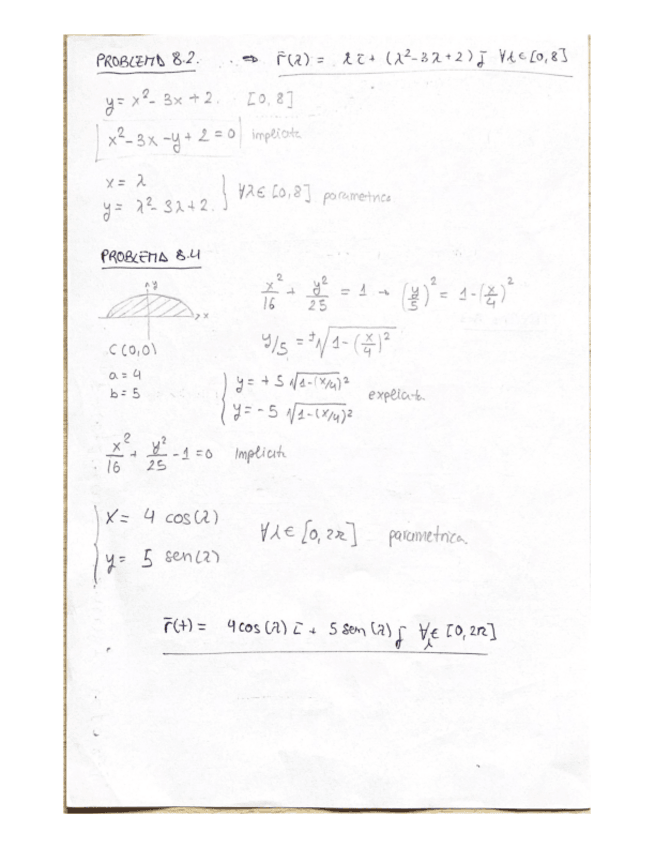 PROBLEMA 8.2. ⇒ r̄(λ) = λ ī + (λ²-3λ+2) j̄ ∀λ∈[0,8]
y = x² - 3x + 2. [0,8]
x² - 3x - y + 2 = 0 implicita
x = λ
y = λ² - 3λ + 2. } ∀λ∈[0,8] parametrica
PROBLEMA 8.4
y
x
C(0,0)
a = 4
b = 5
x²/16 + y²/25 = 1 → (y/5)² = 1-(x/4)²
y/5 = ±√(1-(x/4)²)
y = +5 √(1-(x/4)²)
y = -5 √(1-(x/4)²) explicita.
x²/16 + y²/25 - 1 = 0 Implicita
x = 4 cos(λ)
y = 5 sen(λ)
∀λ∈[0,2π] parametrica.
r̄(t) = 4cos(λ) ī + 5 sen(λ) j̄ ∀λ∈[0,2π]